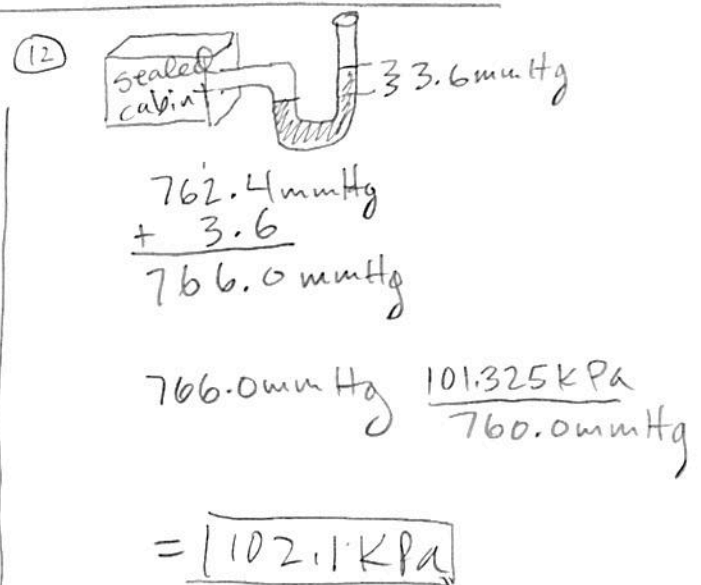 12
sealed
cabint
3.6mmHg
762.4mmHg
+ 3.6
766.0mmHg
766.0mmHg 101.325kPa
760.0mmHg
= 102.1 KPa